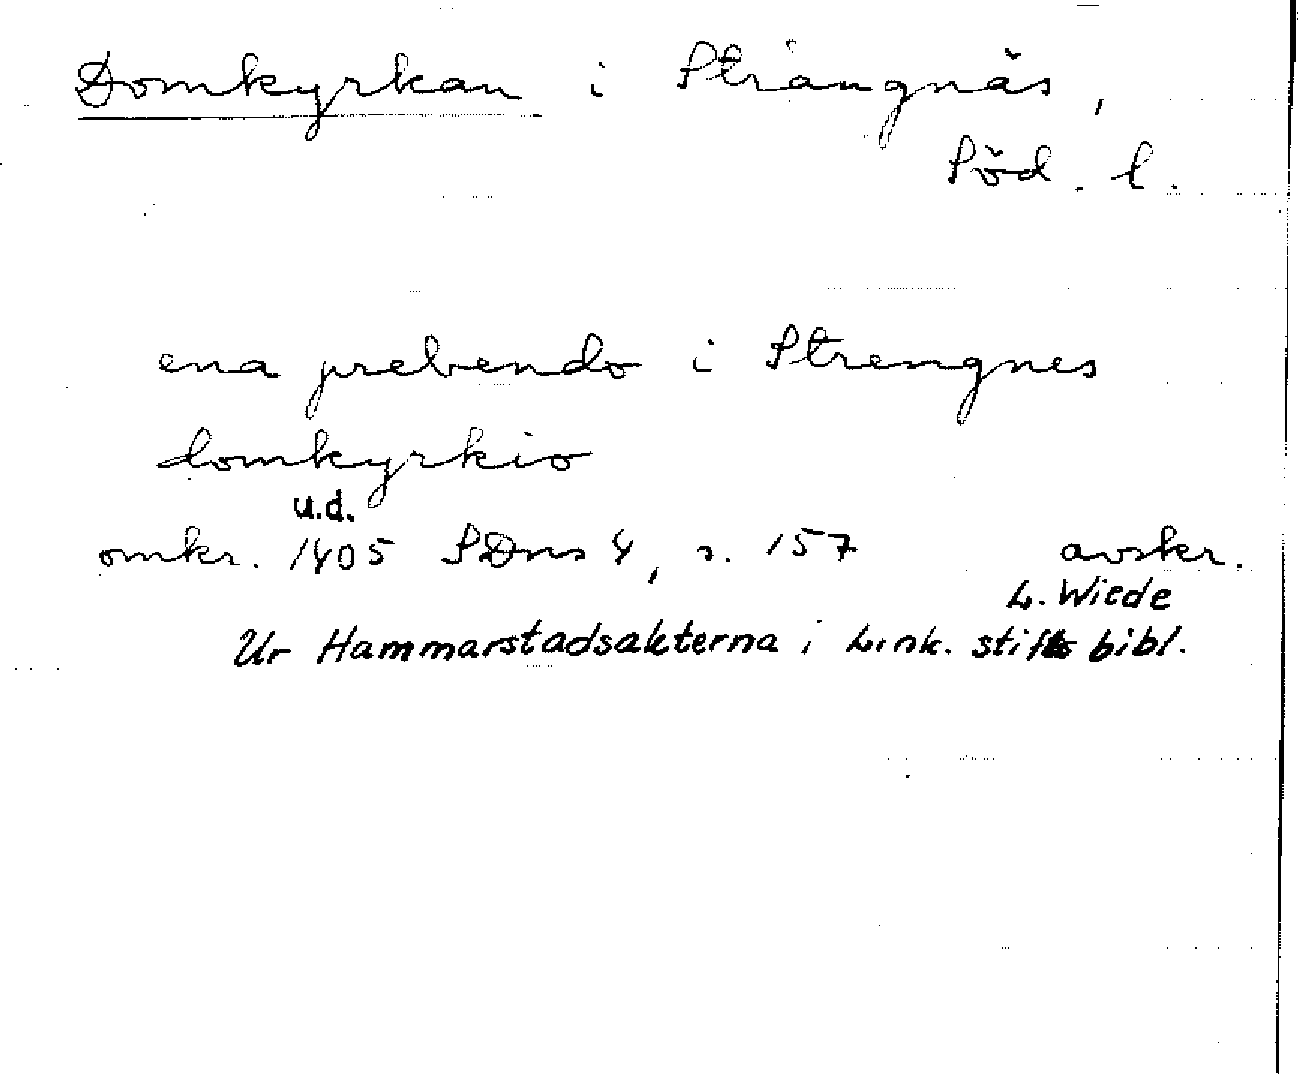 Domkyrkan i Strängnäs,
Söd. l.
ena prebendo i Strengnes
domkyrkio
u.d.
omkr. 1405 SDns 4, s. 157 avskr.
L. Wiede
Ur Hammarstadsakterna i Link. stifts bibl.